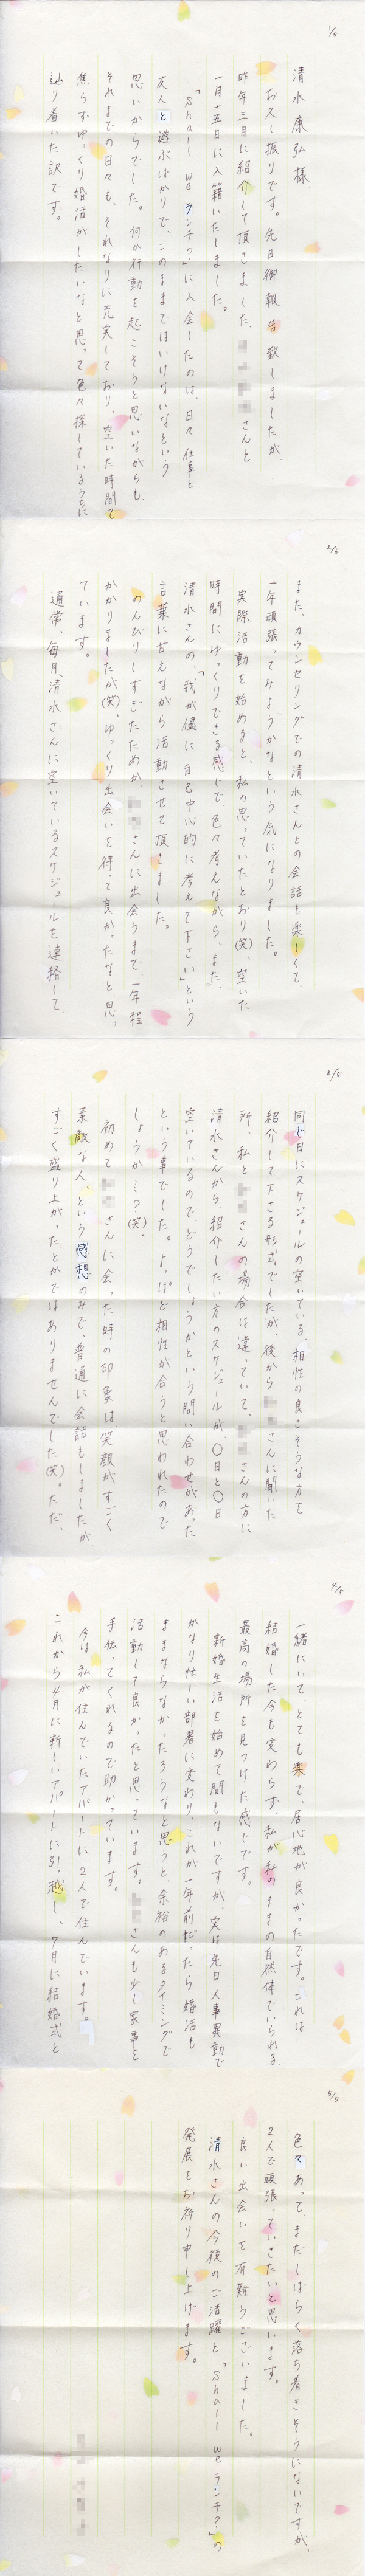 1/5
清水康弘様
お久し振りです。先日御報告致しましたが、
昨年三月に紹介して頂きました、さんと
一月十五日に入籍いたしました。
「Shall we ランチ?」に入会したのは、日々仕事と
友人と遊ぶばかりで、このままではいけないなという
思いからでした。何か行動を起こそうと思いながらも、
それまでの日々も、それなりに充実しており、空いた時間で
焦らずゆっくり婚活がしたいなと思って色々探しているうちに
辿り着いた訳です。
2/5
また、カウンセリングでの清水さんとの会話も楽しくて、
一年頑張ってみようかなという気になりました。
実際活動を始めると、私の思っていたとおり(笑)、空いた
時間にゆっくりできる感じで、色々考えながら、また、
清水さんの、「我が儘に自己中心的に考えて下さい」という
言葉に甘えながら活動させて頂きました。
のんびりしすぎたためか、さんに出会うまで、一年程
かかりましたが(笑)、ゆっくり出会いを待って良かったなと思っ
ています。
通常、毎月、清水さんに空いているスケジュールを連絡して
3/5
同じ日にスケジュールの空いている、相性の良さそうな方を
紹介して下さる形式でしたが、後からさんに聞いた
所、私とさんの場合は違っていて、さんの方に
清水さんから、紹介したい方のスケジュールが、〇日と〇日
空いているので、どうでしょうかという問い合わせがあった
という事でした。よっぽど相性が合うと思われたので
しょうか…?(笑)。
初めてさんに会った時の印象は笑顔がすごく
素敵な人、という感想のみで、普通に会話もしましたが
すごく盛り上がったとかではありませんでした(笑)。ただ、
4/5
一緒にいて、とても楽で、居心地が良かったです。これは
結婚した今も変わらず、私が私のままの自然体でいられる、
最高の場所を見つけた感じです。
新婚生活を始めて間もないですが、実は先日人事異動で
かなり忙しい部署に変わり、これが一年前だったら婚活も
ままならなかったろうなと思うと、余裕のあるタイミングで
活動して良かったと思っています。さんも少し家事を
手伝ってくれるので助かっています。
今は、私が住んでいたアパートに2人で住んでいます。
これから4月に新しいアパートに引っ越し、7月に結婚式と
5/5
色々あって、まだしばらく落ち着きそうにないですが、
2人で頑張っていこたいと思います。
良い出会いを有難うございました。
清水さんの今後のご活躍と、「Shall we ランチ?」の
発展をお祈り申し上げます。